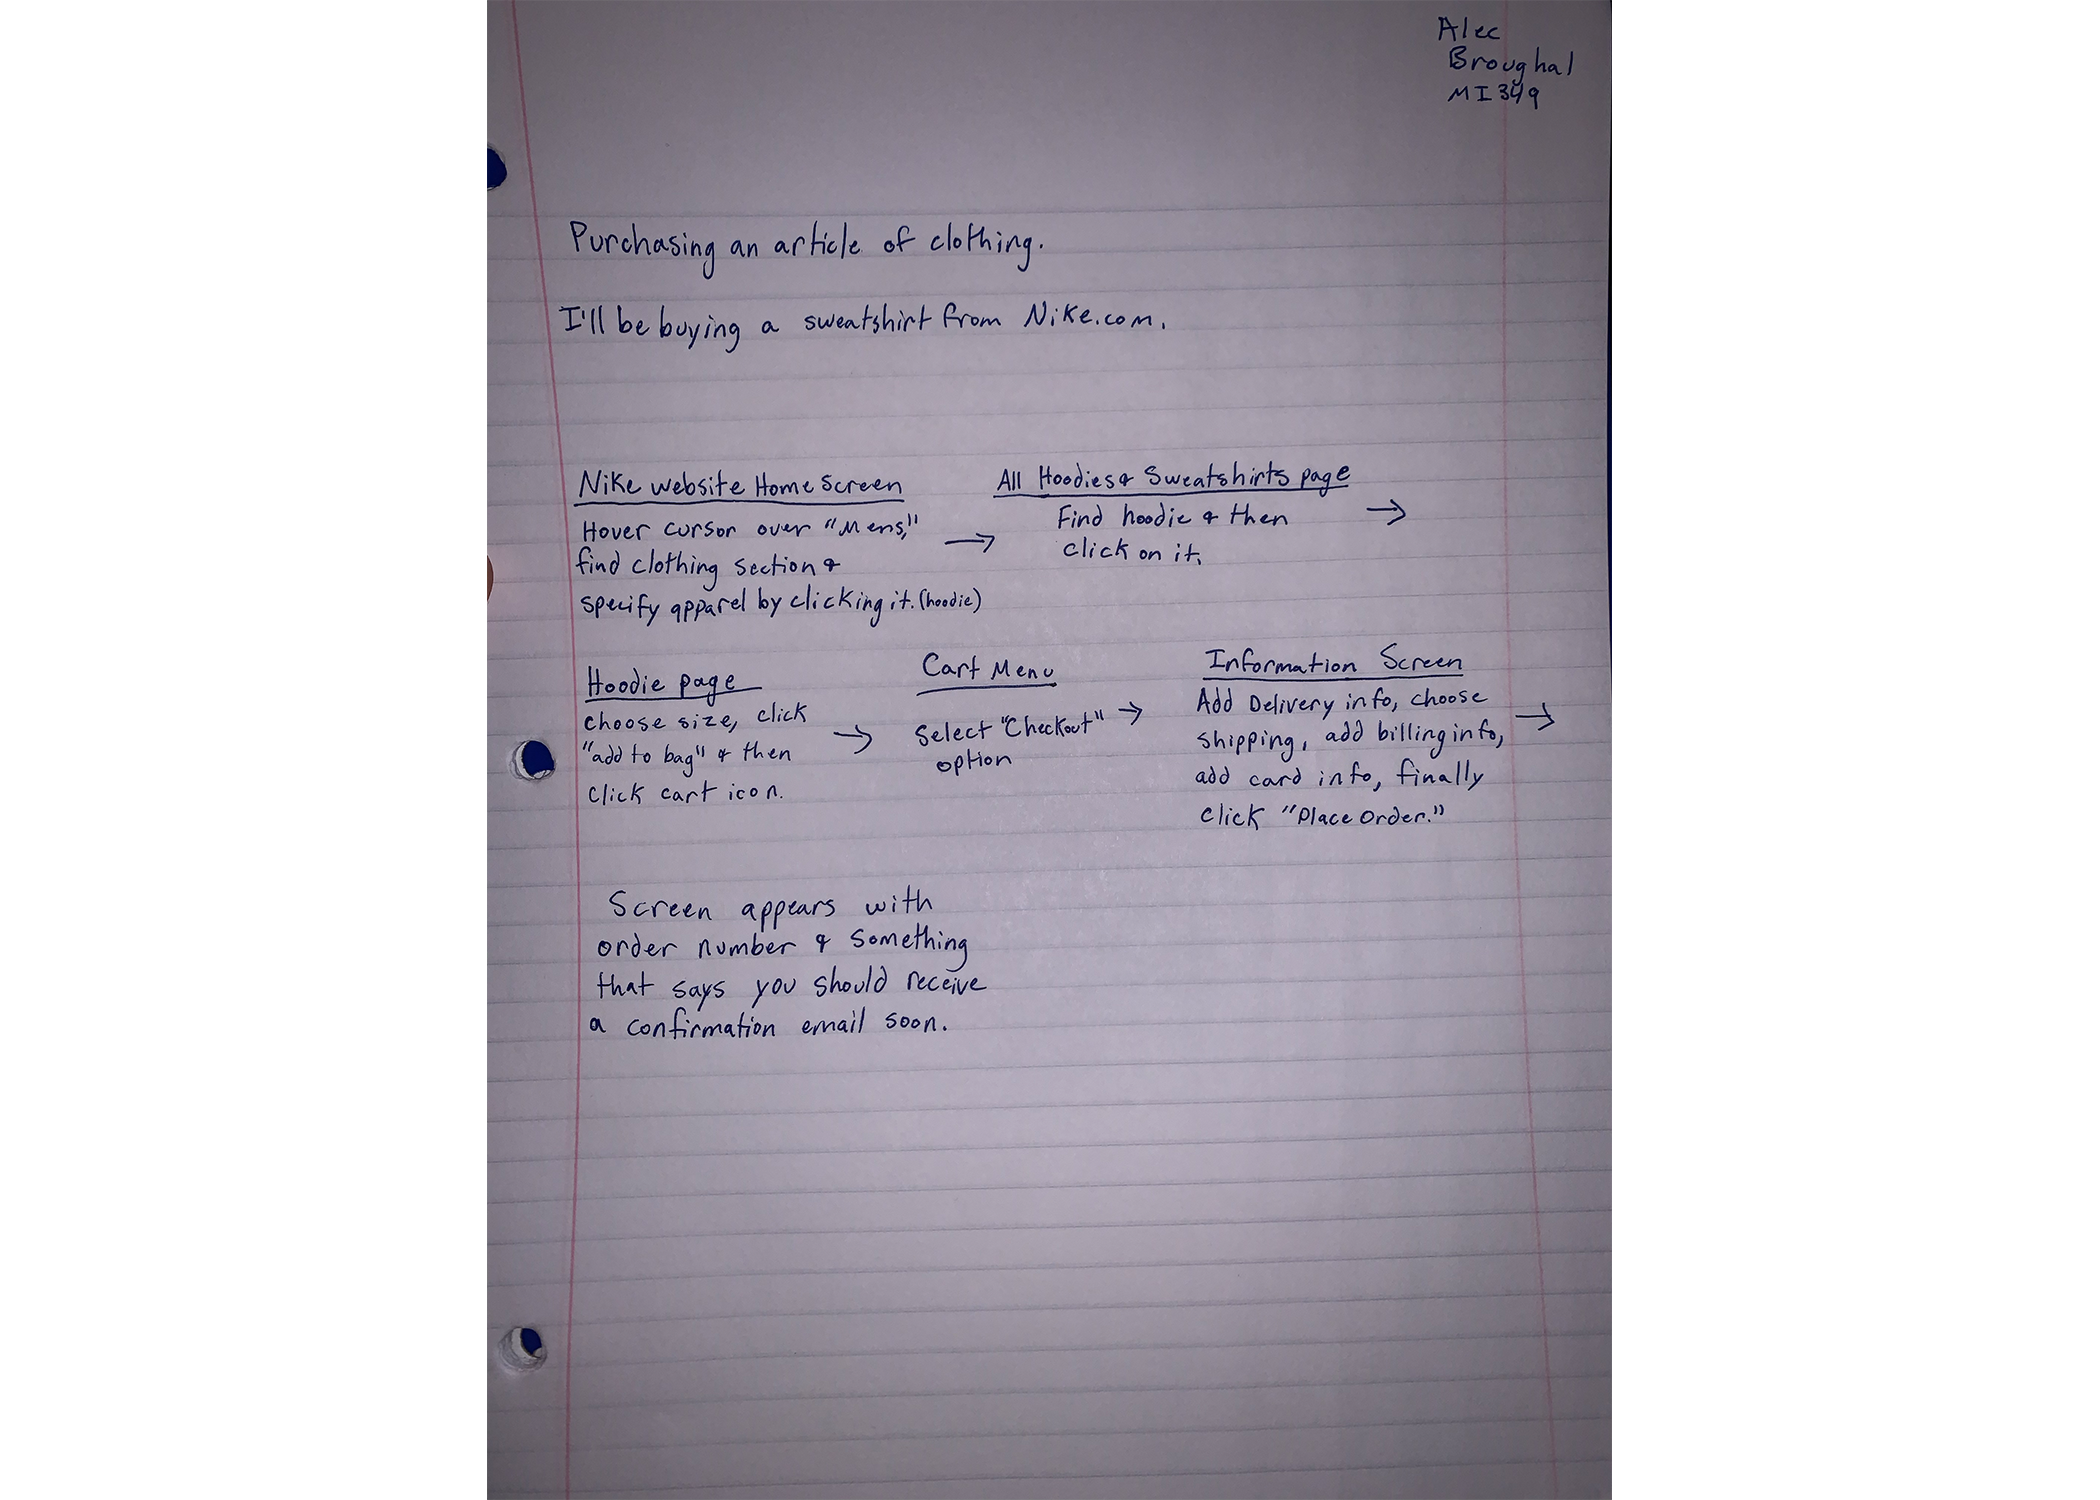 Alec
Broughal
MI349
Purchasing an article of clothing.
I'll be buying a sweatshirt from Nike.com.
Nike website Home Screen
Hover cursor over "Mens,"
find clothing section &
specify apparel by clicking it. (hoodie)
All Hoodies & Sweatshirts page
Find hoodie & then
click on it.
Hoodie page
choose size, click
"add to bag" & then
click cart icon.
Cart Menu
Select "Checkout"
option
Information Screen
Add Delivery info, choose
shipping, add billing info,
add card info, finally
click "Place Order."
Screen appears with
order number & something
that says you should receive
a confirmation email soon.